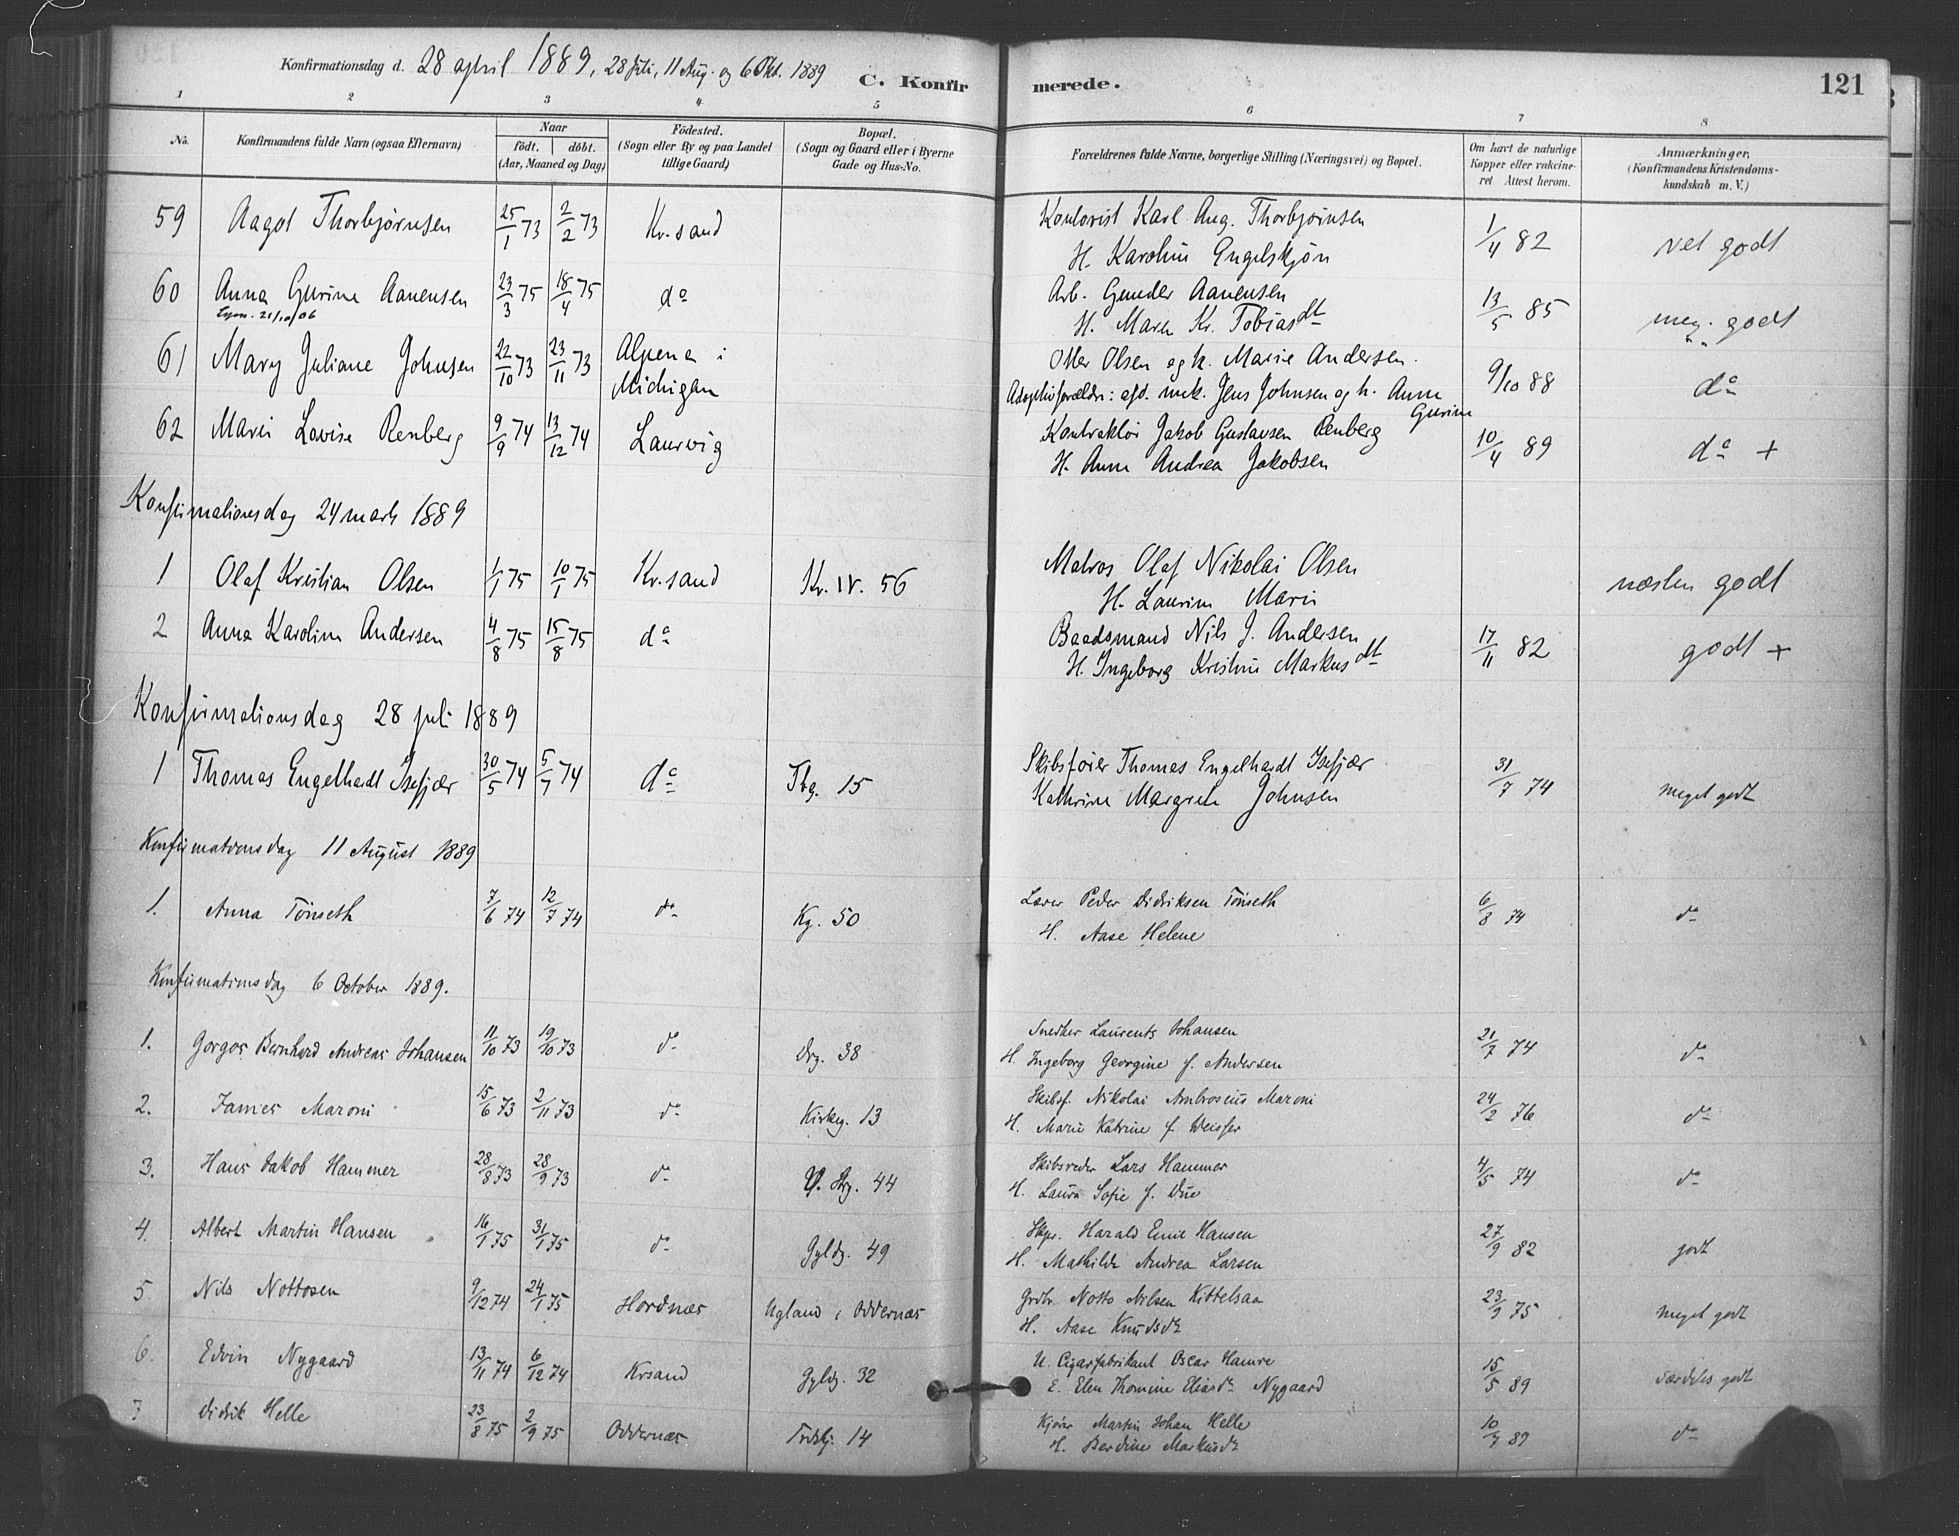 Konfirmationsdag d. 28 april 1889, 28 juli, 11 Aug. og 6 Okt. 1889
C. Konfirmerede.
121
1 2 3 4 5 6 7 8
No.
Konfirmandens fulde Navn (ogsaa Efternavn)
Naar
födt. döbt.
(Aar, Maaned og Dag)
Födested.
(Sogn eller By og paa Landet
tillige Gaard)
Bopæl.
(Sogn og Gaard eller i Byerne
Gade og Hus-No.
Forældrenes fulde Navne, borgerlige Stilling (Næringsvei) og Bopæl.
Om havt de naturlige
Kopper eller vakcine-
ret Attest herom.
Anmærkninger,
(Konfirmandens Kristendoms-
kundskab m. V.)
59 Aagot Thorbjørnsen 25/1 73 2/2 73 Kr.sand Kontorist Karl Aug. Thorbjørnsen 1/4 82 vel godt
H. Karoline Engelskjøn
60 Anna Gurine Aanensen 23/3 75 18/4 75 do Arb. Gunder Aanensen 13/5 85 meg. godt
21/10/06
H. Maren Kr. Tobiasdt
61 Mary Juliane Johnsen 22/10 73 23/11 73 Alpena i Otter Olsen og h. Marie Andersen. 9/10 88 do
Michigan Adoptivforældre: afd. mek. Jens Johnsen og h. Anne
Gurine
62 Marie Lovise Renberg 9/9 74 13/12 74 Laurvig Kontraktør Jakob Gustavsen Renberg 10/4 89 do +
H. Anne Andrea Jakobsen
Konfirmationsdag 24 marts 1889
1 Olaf Kristian Olsen 1/1 75 10/1 75 Kr.sand Kv. IV. 56 Matros Olaf Nikolai Olsen næsten godt
H. Laurine Marie
2 Anna Karoline Andersen 4/8 75 15/8 75 do Baadsmand Nils J. Andersen 17/11 82 godt +
H. Ingeborg Kristine Markusdt
Konfirmationsdag 28 juli 1889
1 Thomas Engelhardt Isefjær 30/5 74 5/7 74 do Tbg. 15 Skibsfører Thomas Engelhardt Isefjær 31/7 74 meget godt
Kathrine Margrete Johnsen
Konfirmationsdag 11 August 1889
1. Anna Tönseth 7/6 74 12/7 74 do Kg. 50 Lærer Peder Didriksen Tönseth 6/8 74 do
H. Aase Helene
Konfirmationsdag 6 October 1889.
1. Gorgos Bernhard Andreas Johansen 11/10 73 19/10 73 do Drg. 38 Snedker Laurents Johansen 21/7 74 do
H. Ingeborg Georgine f. Andersen
2. James Maroni 15/6 73 2/11 73 do Kirkeg. 13 Skibsf. Nikolai Ambrosius Maroni 24/2 76 do
H. Marie Katrine f Weisser
3. Hans Jakob Hammer 28/8 73 28/9 73 do V. Stg. 44 Skibsreder Lars Hammer 4/5 74 do
H. Laura Sofie f. Due
4. Albert Martin Hansen 16/1 75 31/1 75 do Gyldg. 49 Skpr. Harald Emil Hansen 27/9 82 godt
H. Mathilde Andrea Larsen
5 Nils Nottosen 9/12 74 24/1 75 Hordnæs Ugland i Oddernæs Grdbr Notto Nilsen Kittelsaa 23/9 75 meget godt
H. Aase Knudsdt
6. Edvin Nygaard 13/11 74 6/12 74 Krsand Gyldg. 32 U. Cigarfabrikant Oscar Hamre 15/5 89 særdeles godt
E. Elen Thomine Eliasdt Nygaard
7 Didrik Helle 23/8 75 2/9 75 Oddernæs 14 Martin Johan Helle 10/7 89 do
H. Berdine Markusdt